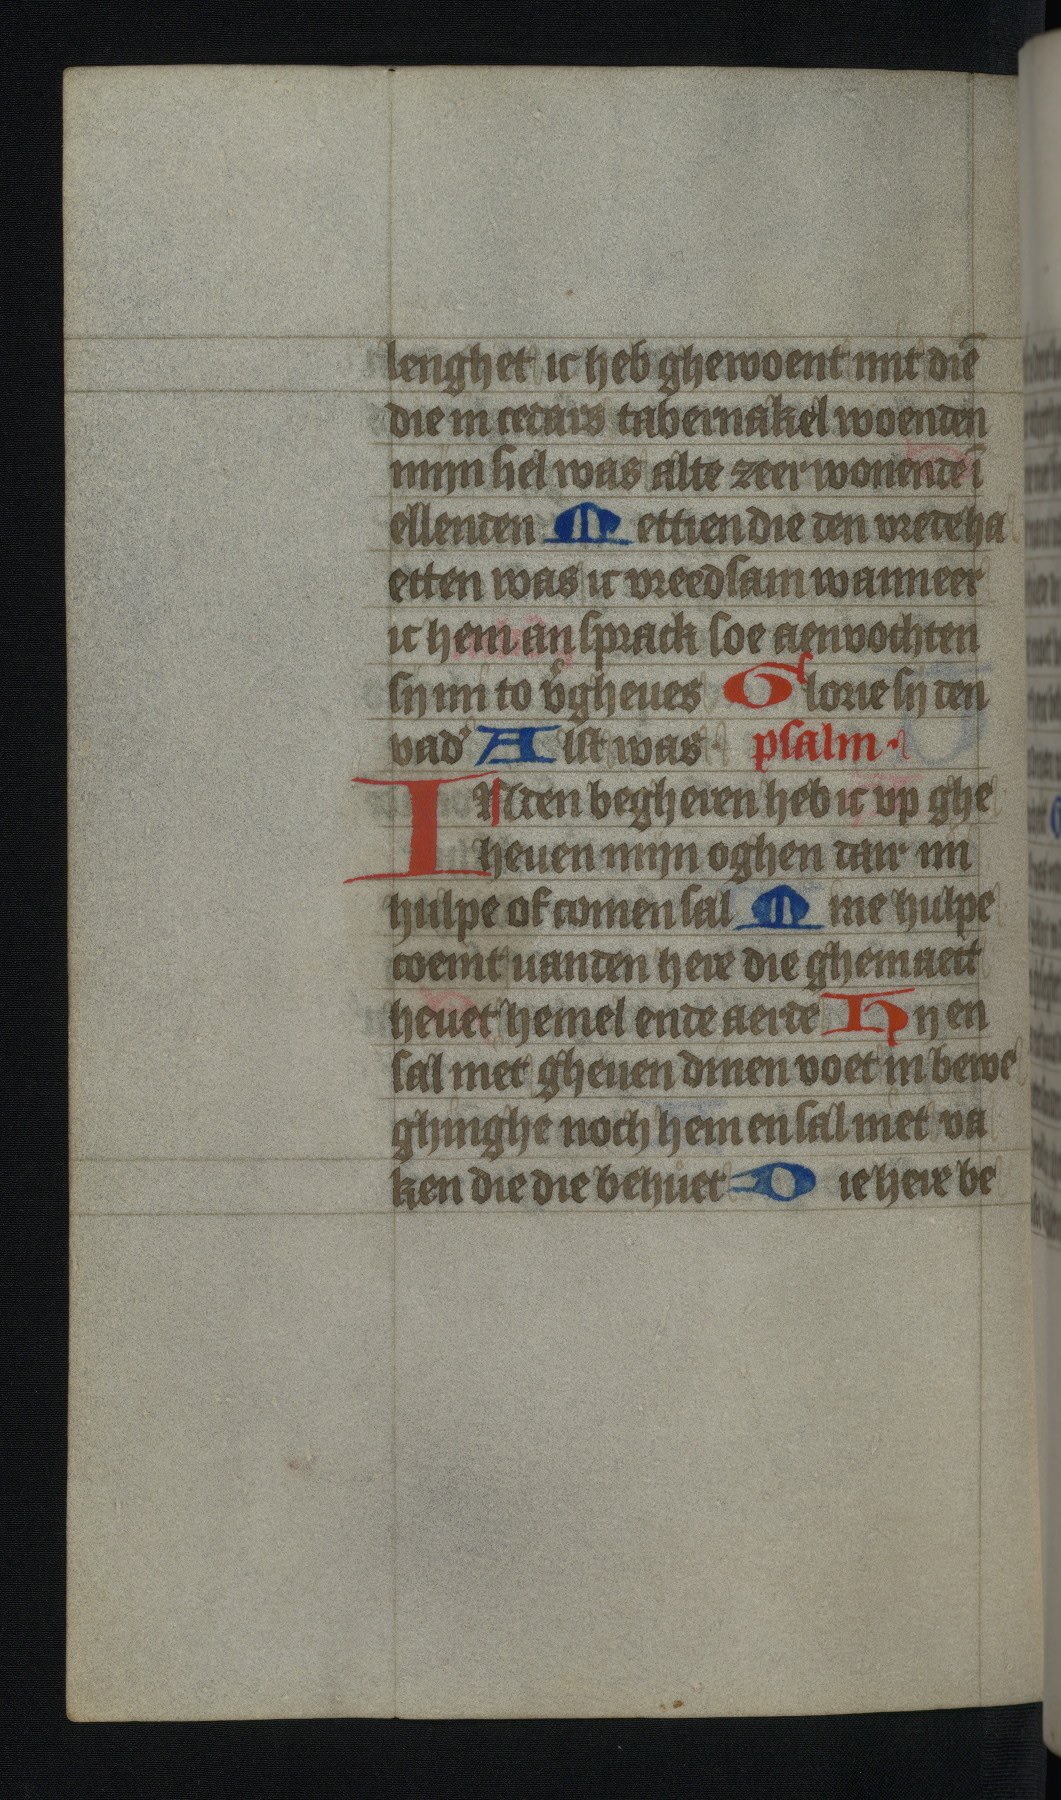 lenghet ic heb ghewoent mit diē
die in cedars tabernakel woenden
mijn siel was alte zeer wonende ī
ellenden Mettien die den vrede ha
etten was ic vreedsam wanneer
ic hem an sprack soe aenvochten
sy mi to v̕gheues Glorie sy den
vad̕ Alst was psalm.
INden begheren heb ic vp ghe
heuen mijn oghen dair mi
hulpe of comen sal Mine hulpe
coemt uanden here die ghemaect
heuet hemel ende aerde Hy en
sal niet gheuen dinen voet in bewe
ghinghe noch hem en sal niet va
ken die die behuet Die here be